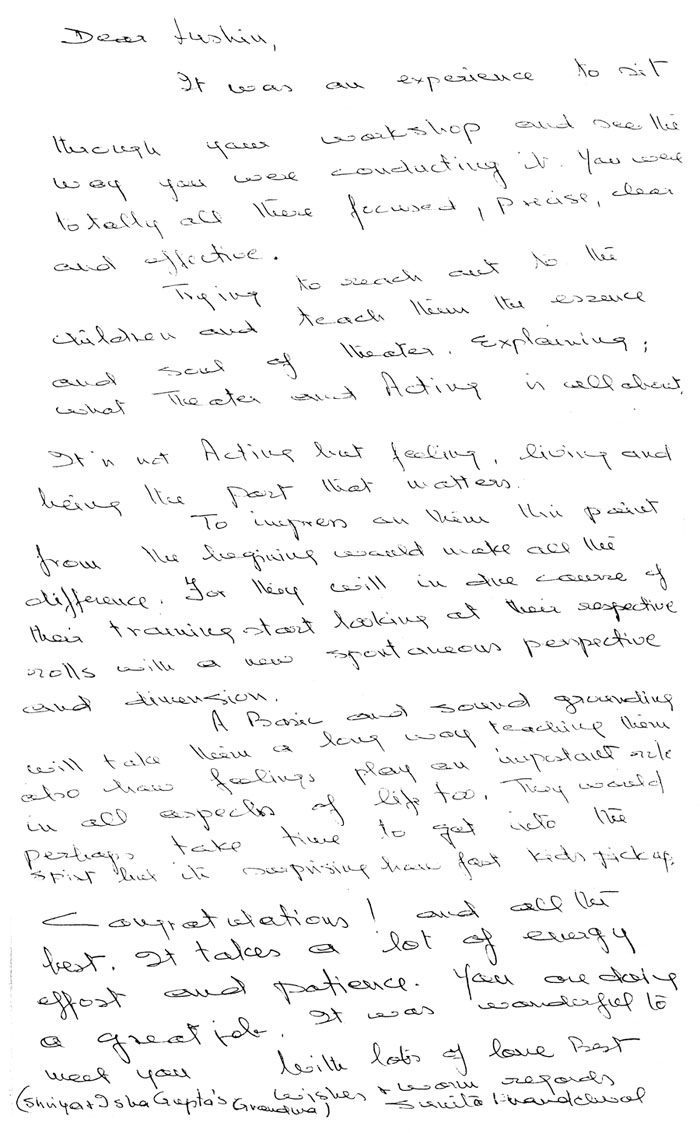 Dear Lushin,
It was an experience to sit
through your workshop and see the
way you were conducting it. You were
totally all there focused, precise, clear
and effective.
Trying to reach out to the
children and teach them the essence
and soul of theater. Explaining;
what Theater and Acting is all about.
It's not Acting but feeling, living and
being the part that matters.
To impress on them this point
from the begining would make all the
difference. For they will in due course of
their training start looking at their respective
rolls with a new spontaneous perspective
and dimension.
A Basic and sound grounding
will take them a long way teaching them
also how feelings play an important role
in all aspects of life too. They would
perhaps take time to get into the
spirt but its surprising how fast kids pick up.
Congratulations! and all the
best. It takes a lot of energy
effort and patience. You are doing
a great job. It was wonderful to
meet you With lots of love Best
wishes + warm regards
(Shriya + Isha Gupta's Grandma) Sunita